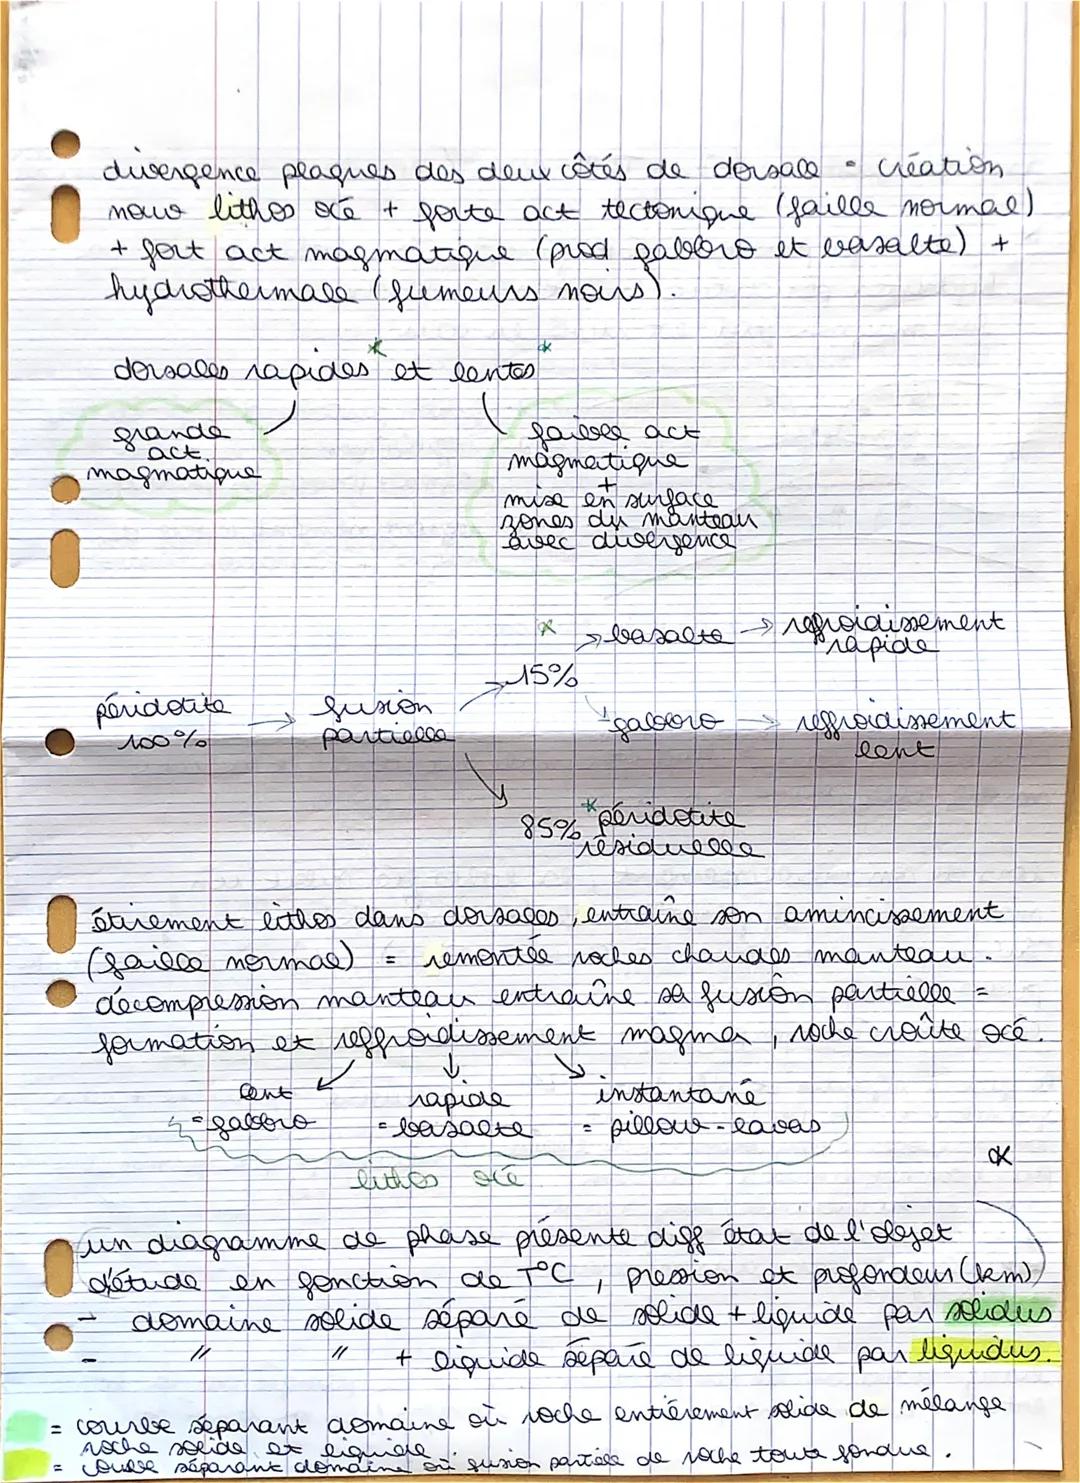 divergence plaques des deux côtés de dorsale = création
nouv lithos océ + forte act tectonique (faille normal)
+ fort act magmatique (prod gabbro et basalte) +
hydrothermale (fumeurs noirs).
dorsales rapides* et lentes*
grande
act.
magmatique
faible act
magmatique
+
mise en surface
zones du manteau
avec divergence
* → basalte → reffroidissement
rapide
→ 15%
péridotite → fusion
100% partielle
→ gabbro → reffroidissement
lent
85% *péridotite
résiduelle
étirement lithos dans dorsales, entraîne son amincissement
(faille normal) = remontée roches chaudes manteau.
décompression manteau entraîne sa fusion partielle =
formation et reffroidissement magma, roche croûte océ.
lent rapide instantané
= gabbro = basalte = pillow-lavas
lithos océ
*
un diagramme de phase présente diff état de l'objet
d'étude en fonction de T°C, pression et profondeur (km)
- domaine solide séparé de solide + liquide par solidus
- " " + liquide séparé de liquide par liquidus.
= courbe séparant domaine où roche entièrement solide de mélange
roche solide et liquide.
= courbe séparant domaine où fusion partielle de roche toute fondue.